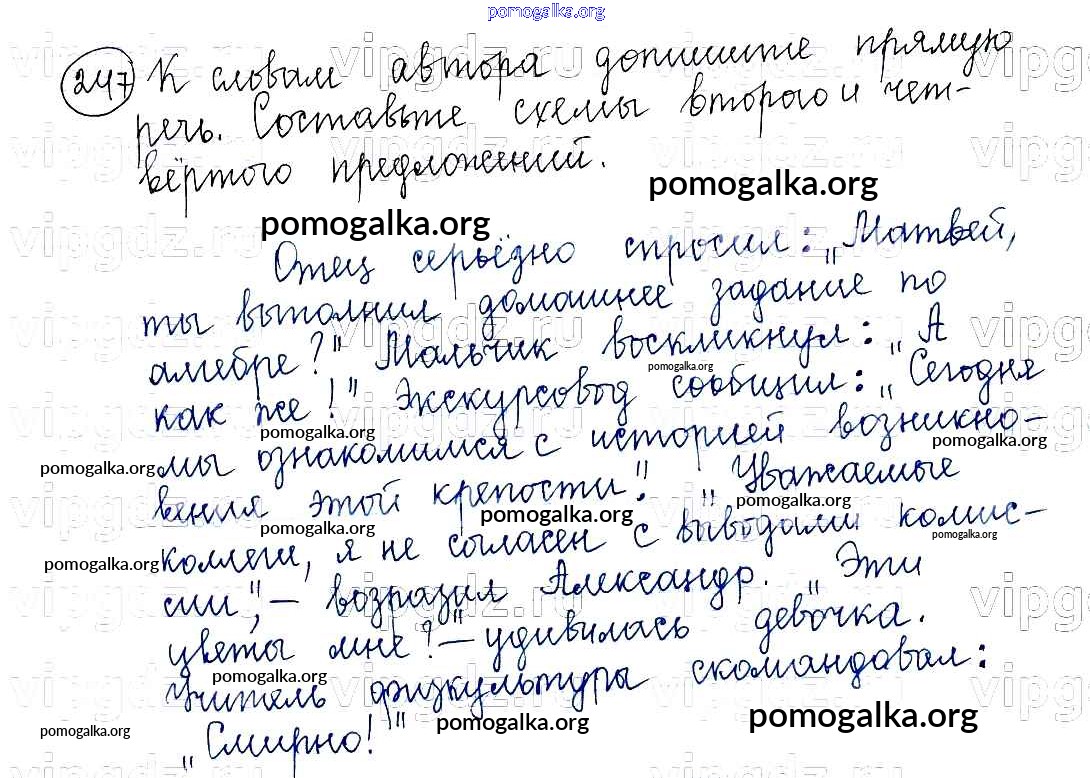 pomogalka.org
247 К словам автора допишите прямую
речь. Составьте схемы второго и чет-
вёртого предложений.
pomogalka.org
pomogalka.org
Отец серьёзно спросил: „Матвей,
ты выполнил домашнее задание по
алгебре?" Мальчик воскликнул: „А
как же!" Экскурсовод сообщил: „Сегодня
мы ознакомимся с историей возникно-
вения этой крепости". „Уважаемые
коллеги, я не согласен с выводами комис-
сии", – возразил Александр. „Эти
цветы мне?" – удивилась девочка.
Учитель физкультуры скомандовал:
„Смирно!"
pomogalka.org
pomogalka.org
pomogalka.org
pomogalka.org
pomogalka.org
pomogalka.org
pomogalka.org
pomogalka.org
pomogalka.org
pomogalka.org
pomogalka.org
pomogalka.org
pomogalka.org